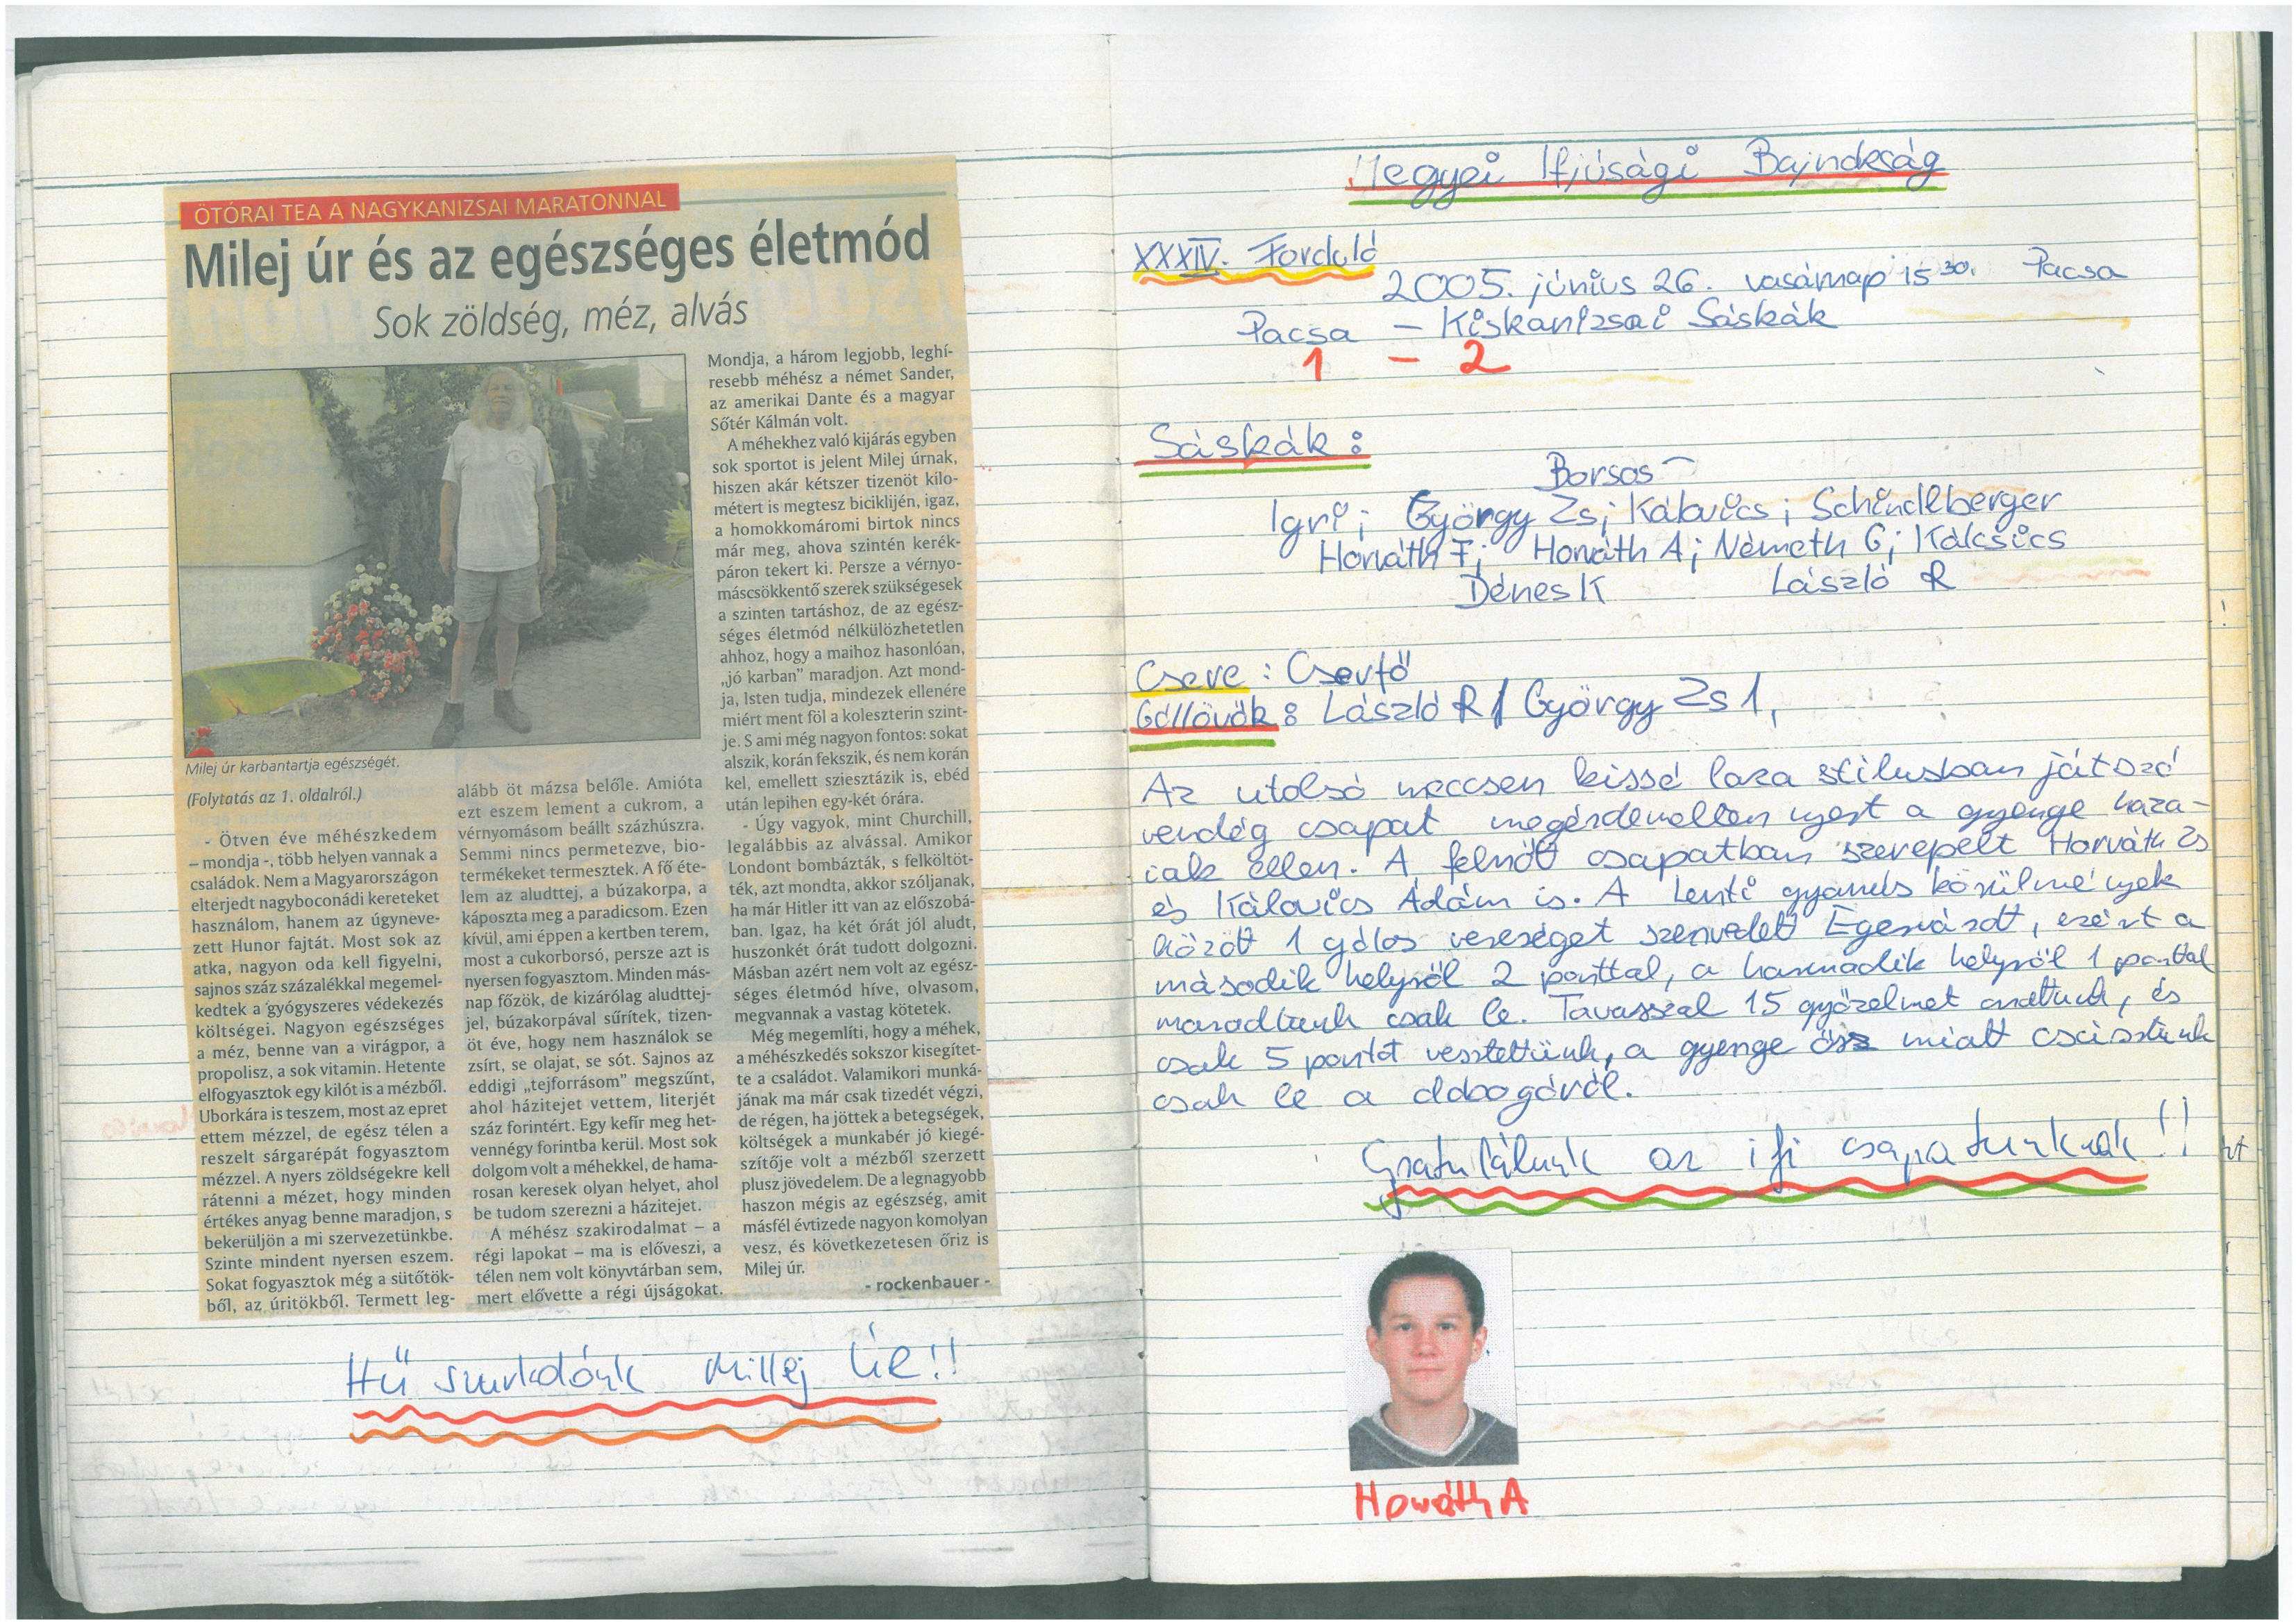 ÖTÓRAI TEA A NAGYKANIZSAI MARATONNAL
Milej úr és az egészséges életmód
Sok zöldség, méz, alvás
Milej úr karbantartja egészségét.
(Folytatás az 1. oldalról.)
- Ötven éve méhészkedem
– mondja -, több helyen vannak a
családok. Nem a Magyarországon
elterjedt nagyboconádi kereteket
használom, hanem az úgyneve-
zett Hunor fajtát. Most sok az
atka, nagyon oda kell figyelni,
sajnos száz százalékkal megemel-
kedtek a gyógyszeres védekezés
költségei. Nagyon egészséges
a méz, benne van a virágpor, a
propolisz, a sok vitamin. Hetente
elfogyasztok egy kilót is a mézből.
Uborkára is teszem, most az epret
ettem mézzel, de egész télen a
reszelt sárgarépát fogyasztom
mézzel. A nyers zöldségekre kell
rátenni a mézet, hogy minden
értékes anyag benne maradjon, s
bekerüljön a mi szervezetünkbe.
Szinte mindent nyersen eszem.
Sokat fogyasztok még a sütőtök-
ből, az úritökből. Termett leg-
alább öt mázsa belőle. Amióta
ezt eszem lement a cukrom, a
vérnyomásom beállt százhúszra.
Semmi nincs permetezve, bio-
termékeket termesztek. A fő éte-
lem az aludttej, a búzakorpa, a
káposzta meg a paradicsom. Ezen
kívül, ami éppen a kertben terem,
most a cukorborsó, persze azt is
nyersen fogyasztom. Minden más-
nap főzök, de kizárólag aludttej-
jel, búzakorpával sűrítek, tizen-
öt éve, hogy nem használok se
zsírt, se olajat, se sót. Sajnos az
eddigi „tejforrásom” megszűnt,
ahol házitejet vettem, literjét
száz forintért. Egy kefír meg het-
vennégy forintba kerül. Most sok
dolgom volt a méhekkel, de hama-
rosan keresek olyan helyet, ahol
be tudom szerezni a házitejet.
A méhész szakirodalmat – a
régi lapokat – ma is előveszi, a
télen nem volt könyvtárban sem,
mert elővette a régi újságokat.
Mondja, a három legjobb, leghí-
resebb méhész a német Sander,
az amerikai Dante és a magyar
Sőtér Kálmán volt.
A méhekhez való kijárás egyben
sok sportot is jelent Milej úrnak,
hiszen akár kétszer tizenöt kilo-
métert is megtesz biciklijén, igaz,
a homokkomáromi birtok nincs
már meg, ahova szintén kerék-
páron tekert ki. Persze a vérnyo-
máscsökkentő szerek szükségesek
a szinten tartáshoz, de az egész-
séges életmód nélkülözhetetlen
ahhoz, hogy a maihoz hasonlóan,
„jó karban” maradjon. Azt mond-
ja, Isten tudja, mindezek ellenére
miért ment föl a koleszterin szint-
je. S ami még nagyon fontos: sokat
alszik, korán fekszik, és nem korán
kel, emellett sziesztázik is, ebéd
után lepihen egy-két órára.
- Úgy vagyok, mint Churchill,
legalábbis az alvással. Amikor
Londont bombázták, s felköltöt-
ték, azt mondta, akkor szóljanak,
ha már Hitler itt van az előszobá-
ban. Igaz, ha két órát jól aludt,
huszonkét órát tudott dolgozni.
Másban azért nem volt az egész-
séges életmód híve, olvasom,
megvannak a vastag kötetek.
Még megemlíti, hogy a méhek,
a méhészkedés sokszor kisegítet-
te a családot. Valamikori munká-
jának ma már csak tizedét végzi,
de régen, ha jöttek a betegségek,
költségek a munkabér jó kiegé-
szítője volt a mézből szerzett
plusz jövedelem. De a legnagyobb
haszon mégis az egészség, amit
másfél évtizede nagyon komolyan
vesz, és következetesen őriz is
Milej úr.
- rockenbauer -
Hű szurkolónk Millej Úr!!
Megyei Ifjúsági Bajnokság
XXXIV. Forduló
2005. június 26. vasárnap 15 30. Pacsa
Pacsa – Kiskanizsai Sáskák
1 – 2
Sáskák:
Borsos
Igri; György Zs; Kálovics; Schindlberger
Horváth F; Horváth A; Németh G; Kálcsics
Dénes K László R
Csere: Csertő
Góllövők: László R 1 György Zs 1,
Az utolsó meccsen kissé laza stílusban játszó
vendég csapat megérdemelten nyert a gyenge haza-
iak ellen. A felnőtt csapatban szerepelt Horváth Zs
és Kálovics Ádám is. A Lenti gyanús körülmények
között 1 gólos vereséget szenvedett Egerváron, ezért a
második helyről 2 ponttal, a harmadik helyről 1 ponttal
maradtunk csak le. Tavasszal 15 győzelmet arattunk, és
csak 5 pontot vesztettünk, a gyenge ősz miatt csúsztunk
csak le a dobogóról.
Gratulálunk az ifi csapatunknak!!
Horváth A